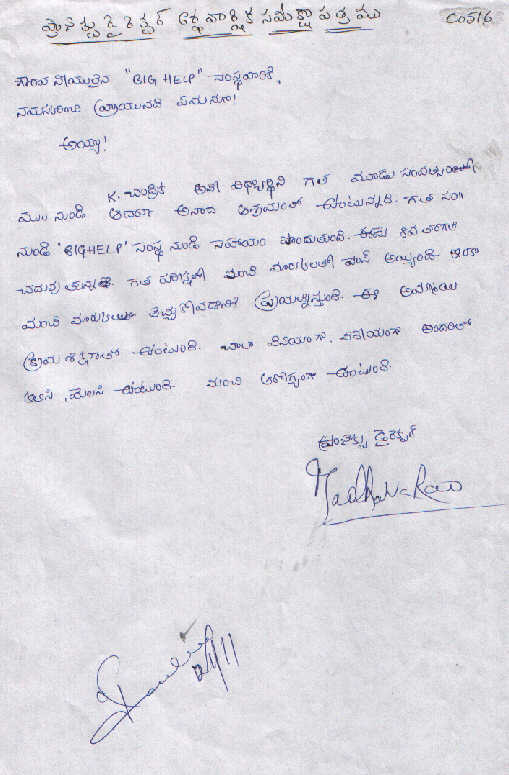 ప్రాజెక్టు డైరెక్టర్ అర్ధవార్షిక సమీక్షా పత్రము C0516
గౌరవనీయులైన "BIG HELP" సంస్థవారికి,
నమస్కరించి వ్రాయునది ఏమనగా!
అయ్యా!
K. చంద్రిక అనే విద్యార్థిని గత మూడు సంవత్సరముల
నుండి అనాధ ఆశ్రమంలో ఉంటున్నది. గత సం॥
నుండి "BIGHELP" సంస్థ నుండి సహాయం పొందుతుంది. ఈమె 8వ తరగతి
చదువుతున్నది. గత పరీక్షలో మంచి మార్కులతో పాస్ అయ్యింది. ఇంకా
మంచి మార్కులు తెచ్చుకోవడానికి ప్రయత్నిస్తుంది. ఈ అమ్మాయి
క్రమశిక్షణతో ఉంటుంది. చాలా వినయంగా, అందరితో
కలసి, మెలసి ఉంటుంది. మంచి ఆరోగ్యంగా ఉంటుంది.
ప్రాజెక్టు డైరెక్టర్
Madhava Rao